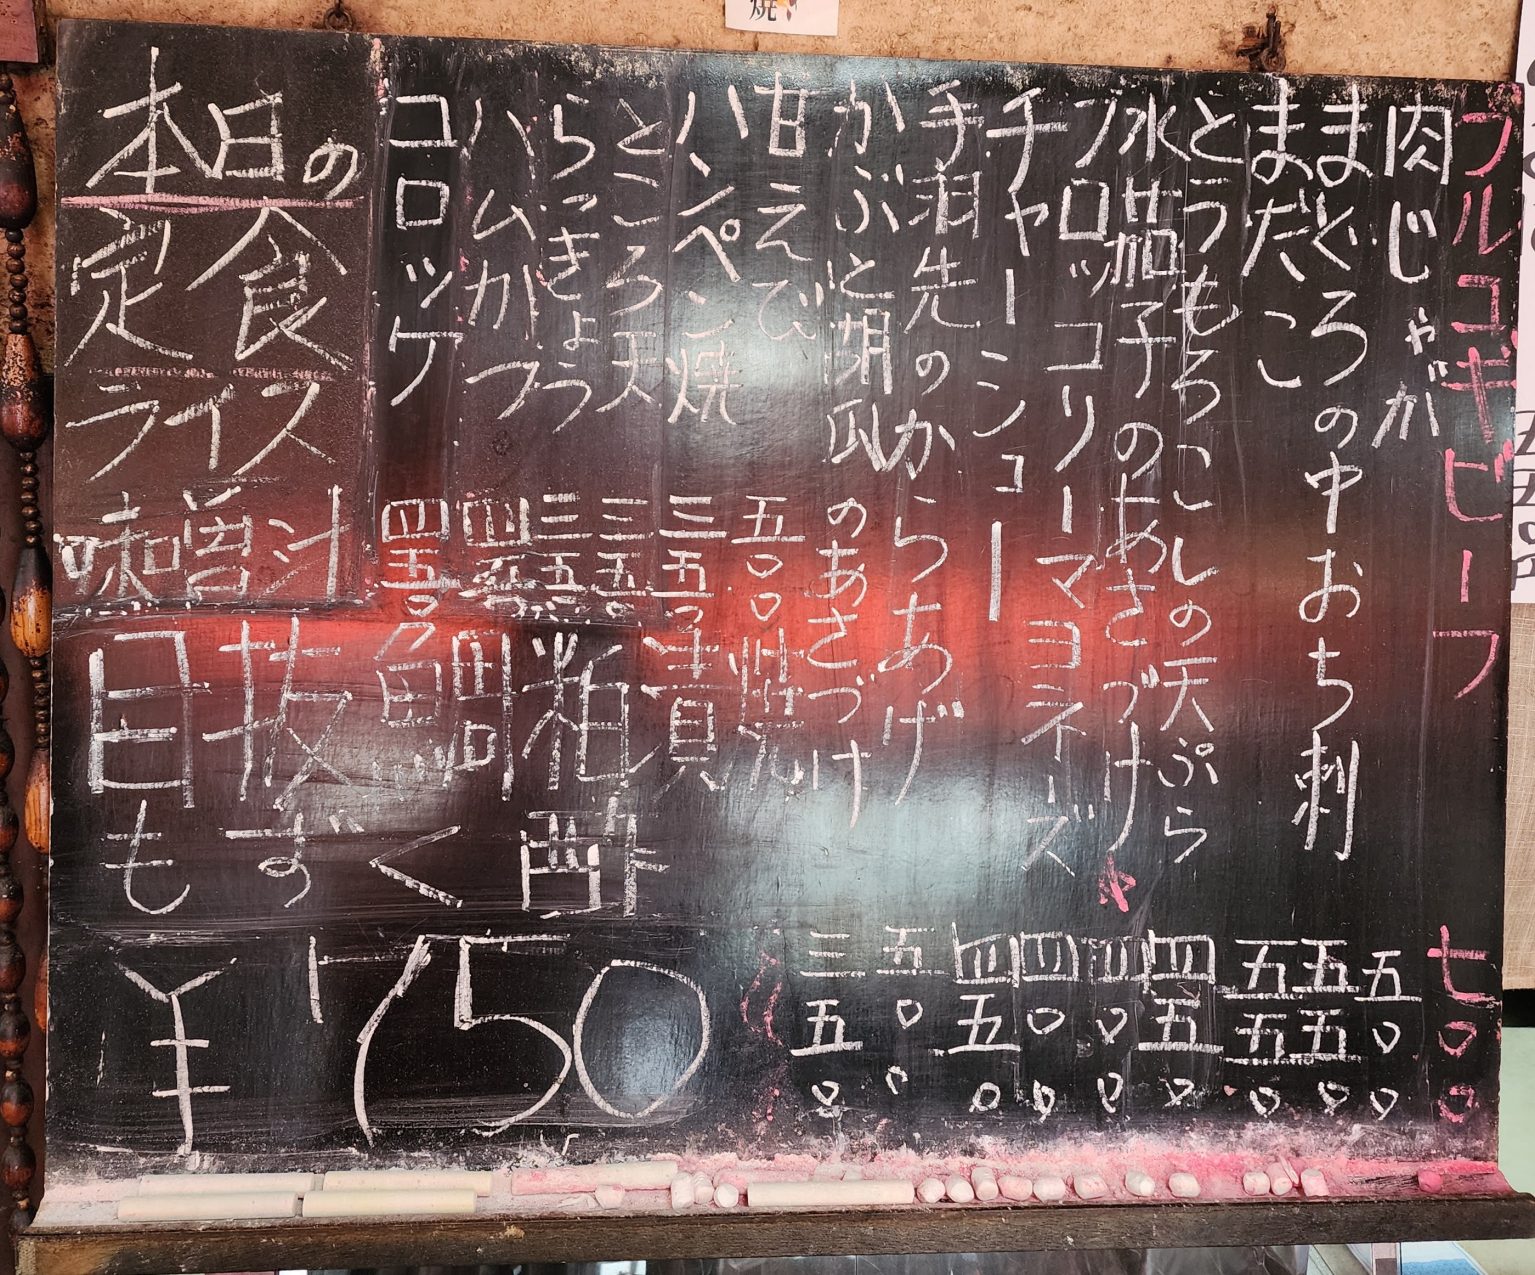 プルコギビーフ 七〇〇
肉じゃが 五〇〇
まぐろの中おち刺 五五〇
まだこ 五五〇
とうもろこしの天ぷら 四五〇
水茄子のあさづけ 四〇〇
ブロッコリーマヨネーズ 四〇〇
チャーシュー 四五〇
手羽先のからあげ 五〇〇
かぶと胡瓜のあさづけ 三五〇
甘えび 五〇〇
ハンペン焼 三五〇
ところ天 三五〇
らっきょう 三五〇
ハムカツ
コロッケ 四五〇
本日の
定食
ライス
味噌汁
目抜鯛粕
もずく酢
¥750
焼